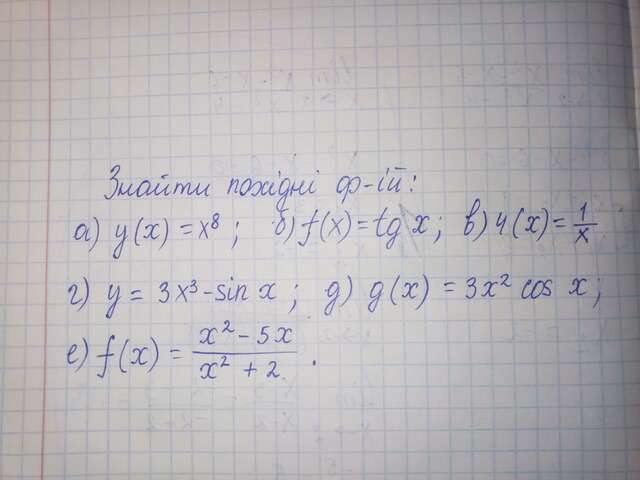 Знайти похідні ф-ій:
а) y(x) = x⁸ ; б) f(x) = tg x ; в) y(x) = 1/x
г) y = 3x³ - sin x ; д) g(x) = 3x² cos x ;
е) f(x) = (x² - 5x)/(x² + 2) .